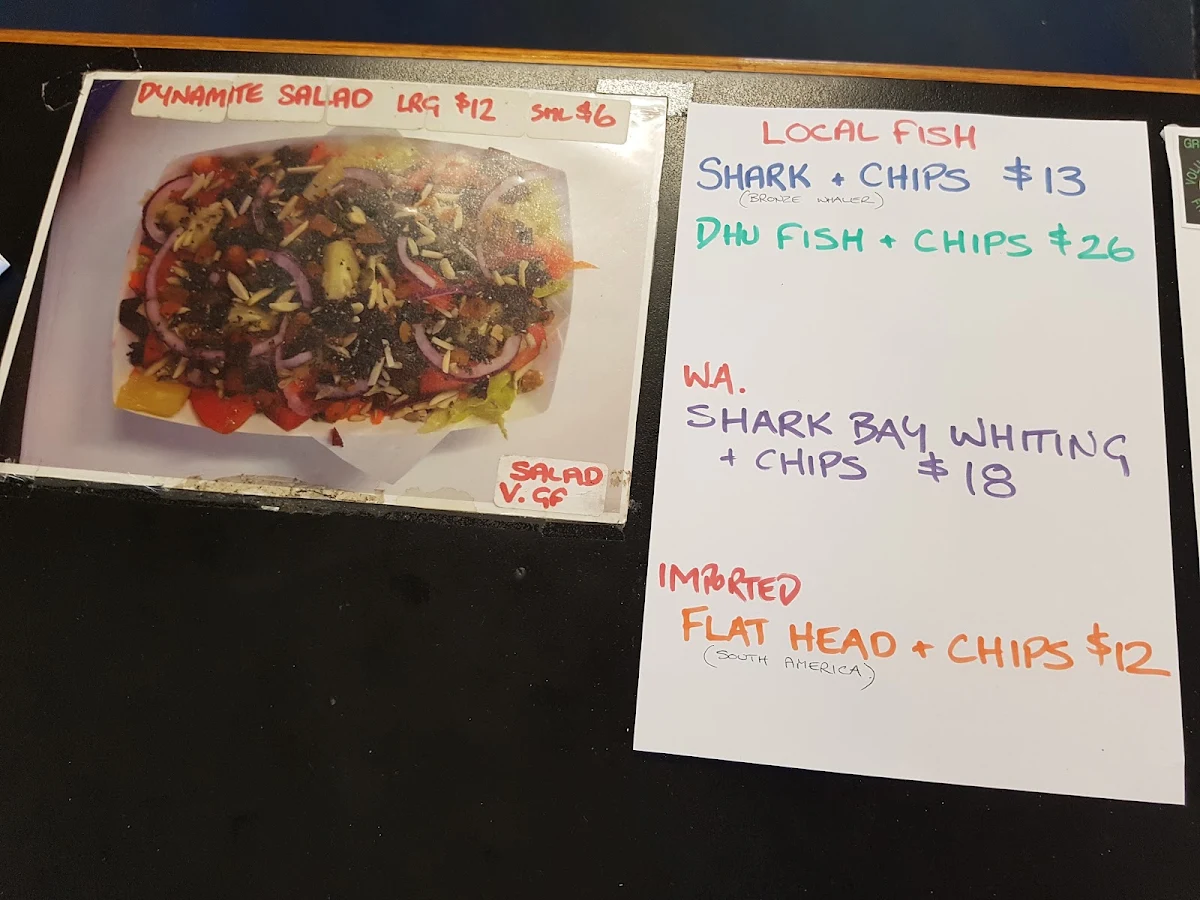 DYNAMITE SALAD LRG $12 SML $6
SALAD
V. GF
LOCAL FISH
SHARK + CHIPS $13
(BRONZE WHALER)
DHU FISH + CHIPS $26
WA.
SHARK BAY WHITING
+ CHIPS $18
IMPORTED
FLAT HEAD + CHIPS $12
(SOUTH AMERICA)